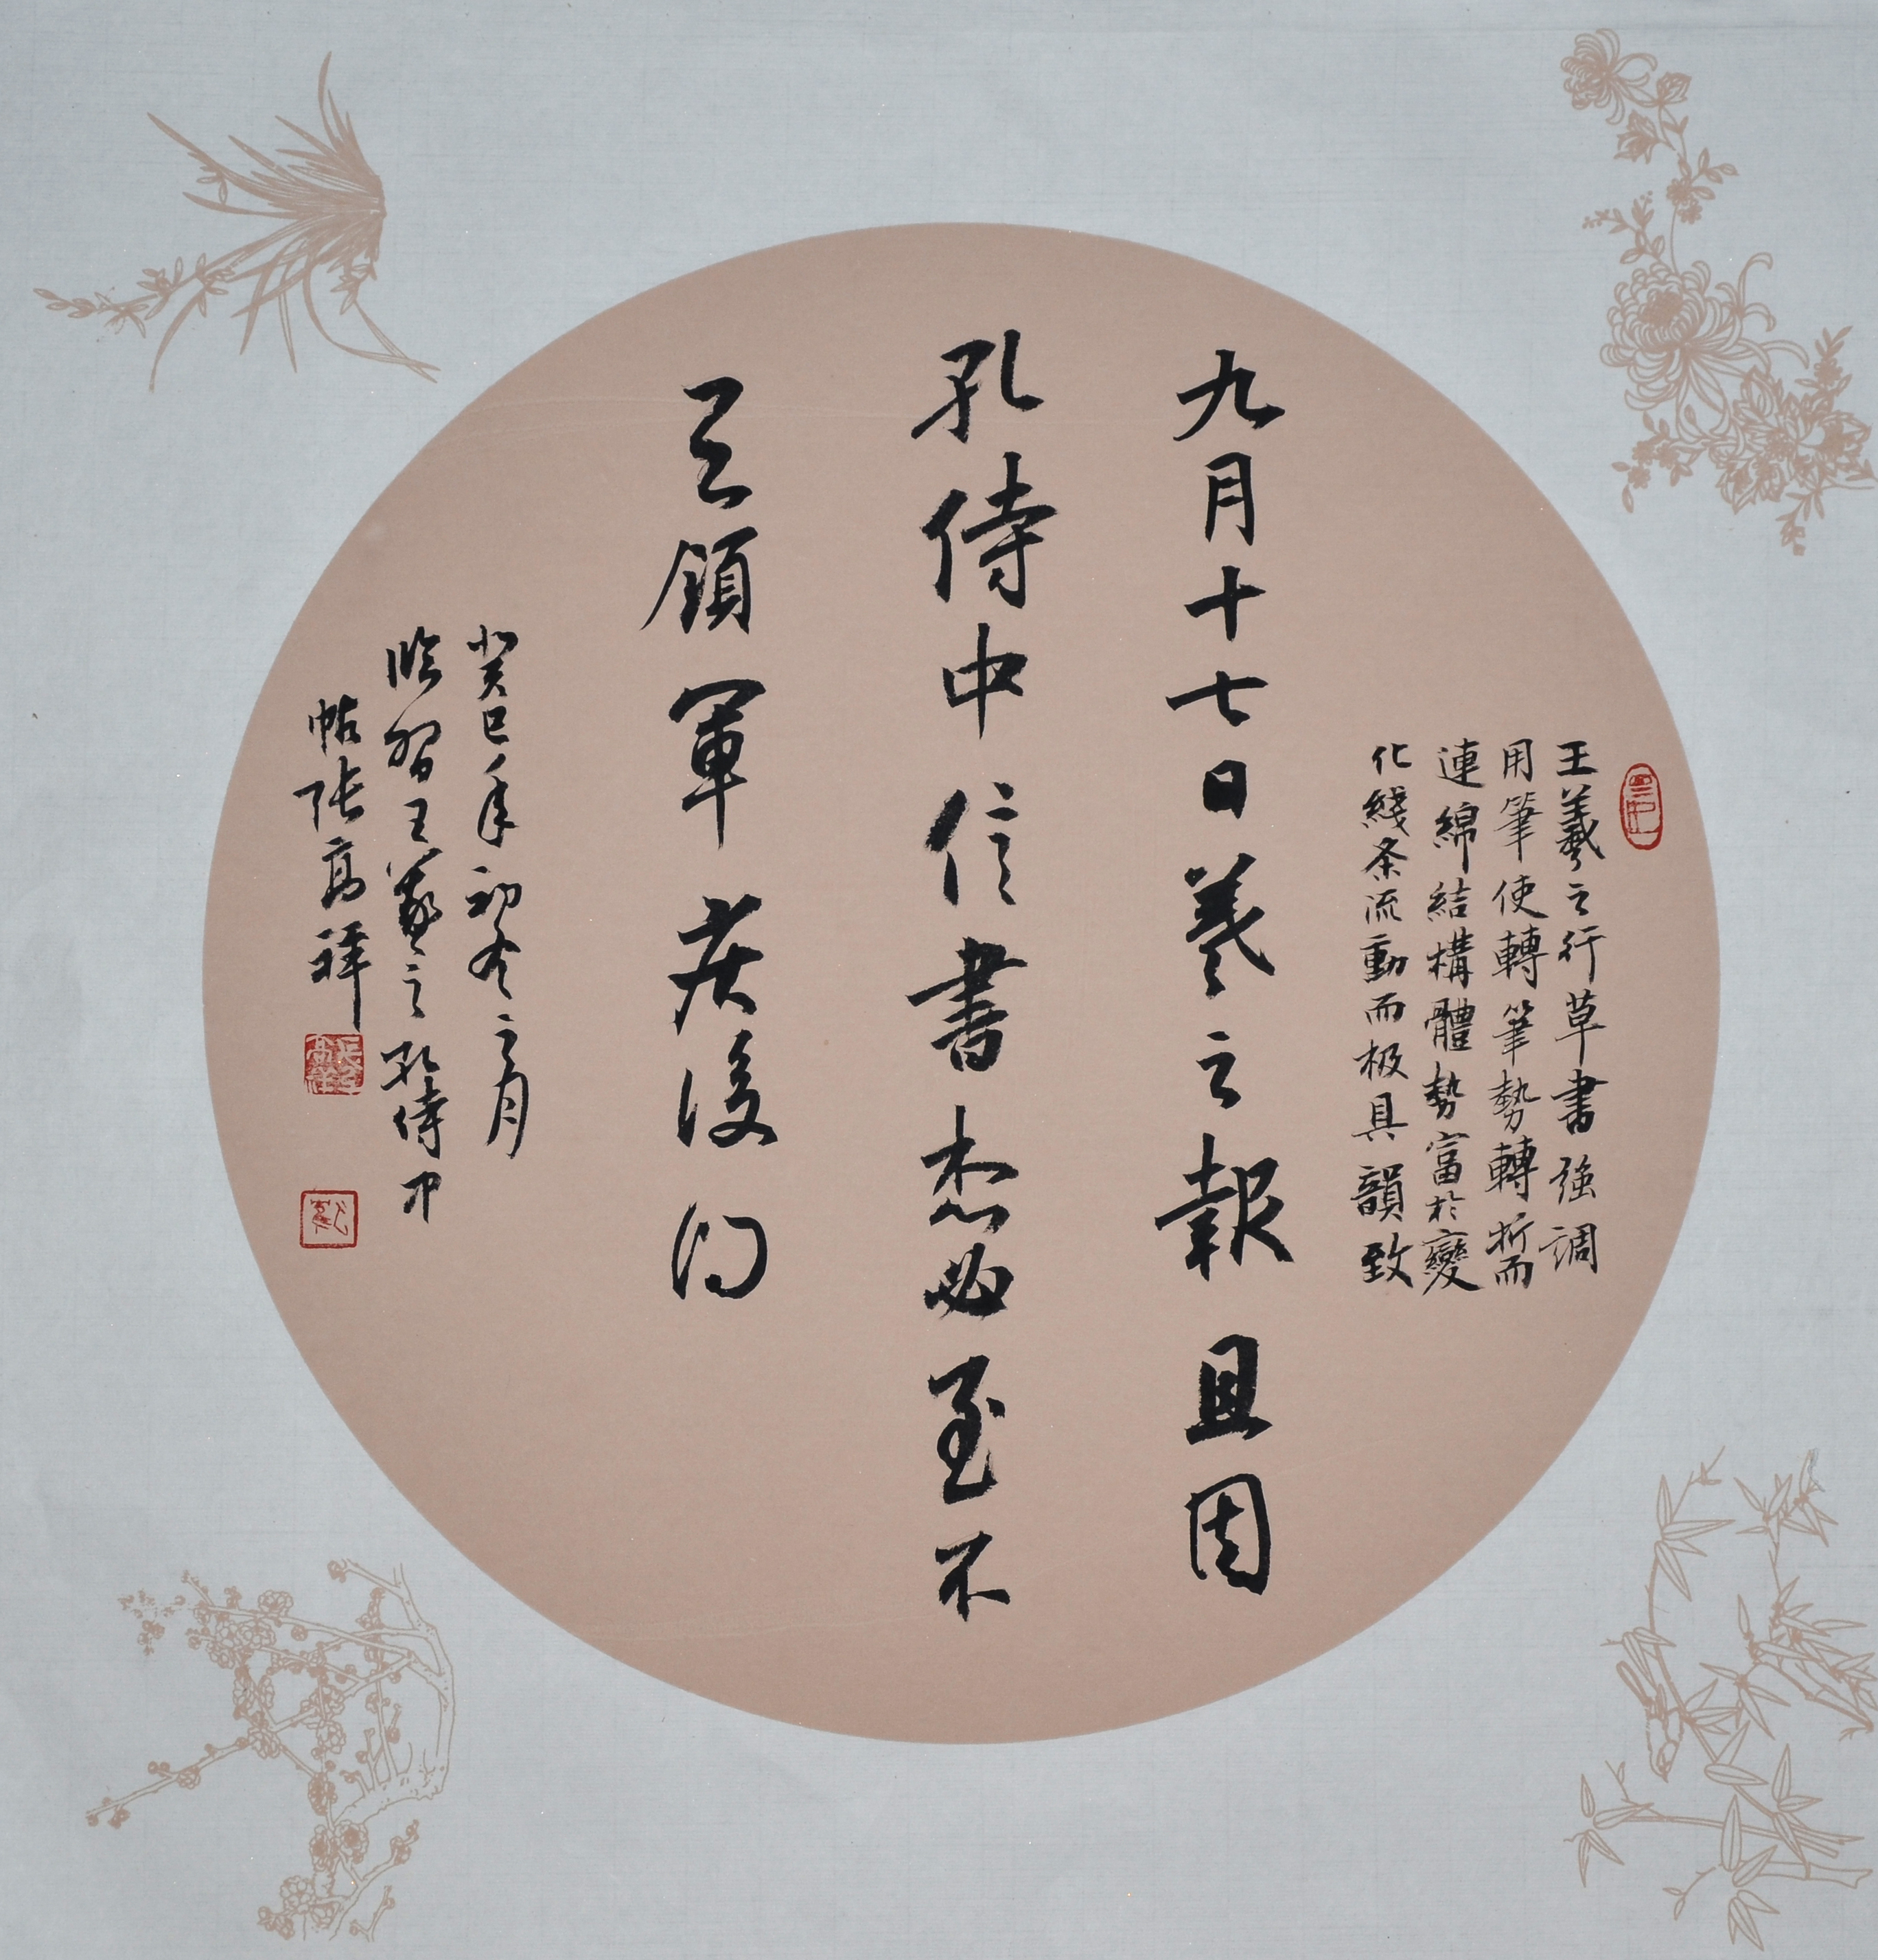 王羲之行草書強調
用筆使轉筆勢轉折而
連綿結構體勢富於變
化綫条流動而极具韻致
九月十七日羲之報且因
孔侍中信書想必至不
知領軍疾後問
癸巳年初冬之月
臨習王羲之孔侍中
帖張高祥